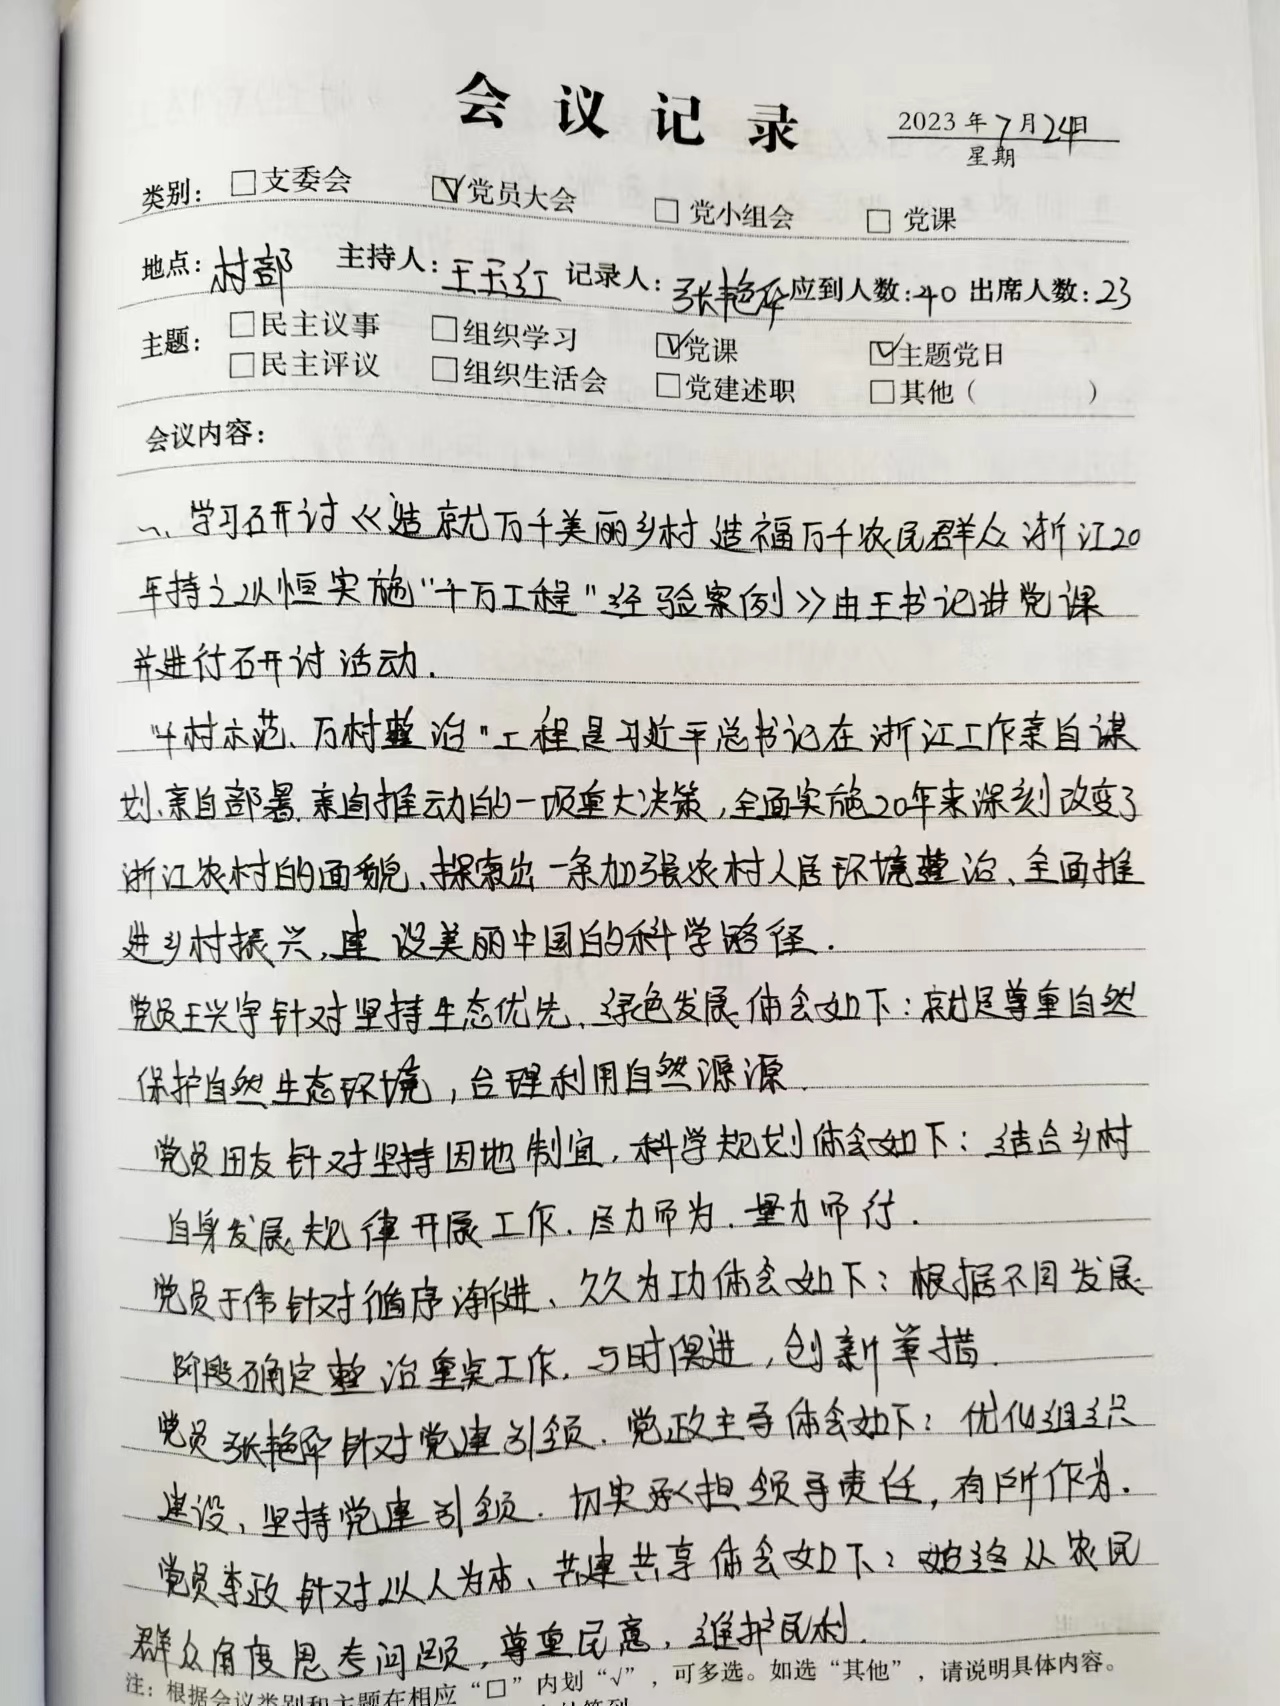 会议记录
2023年7月24日
星期
类别：□支委会 ☑党员大会 □党小组会 □党课
地点：村部 主持人：王玉红 记录人：张艳华 应到人数：40 出席人数：23
主题：□民主议事 □组织学习 ☑党课 ☑主题党日
□民主评议 □组织生活会 □党建述职 □其他（ ）
会议内容：
一、学习研讨《造就万千美丽乡村 造福万千农民群众 浙江20
年持之以恒实施“千万工程”经验案例》由王书记讲党课
并进行研讨活动.
“千村示范、万村整治”工程是习近平总书记在浙江工作亲自谋
划、亲自部署、亲自推动的一项重大决策,全面实施20年来深刻改变了
浙江农村的面貌、探索出一条加强农村人居环境整治、全面推
进乡村振兴,建设美丽中国的科学路径.
党员王兴宇针对坚持生态优先、绿色发展体会如下：就是尊重自然
保护自然生态环境,合理利用自然源源.
党员田友针对坚持因地制宜,科学规划体会如下：结合乡村
自身发展规律开展工作.尽力而为.量力而行.
党员于伟针对循序渐进、久久为功体会如下：根据不同发展
阶段确定整治重点工作.与时俱进,创新举措.
党员张艳华针对党建引领.党政主导体会如下：优化组织
建设、坚持党建引领.切实承担领导责任,有所作为.
党员李政针对以人为本、共建共享体会如下：始终从农民
群众角度思考问题,尊重民意,维护民利.
注：根据会议类别和主题在相应“□”内划“√”，可多选。如选“其他”，请说明具体内容。